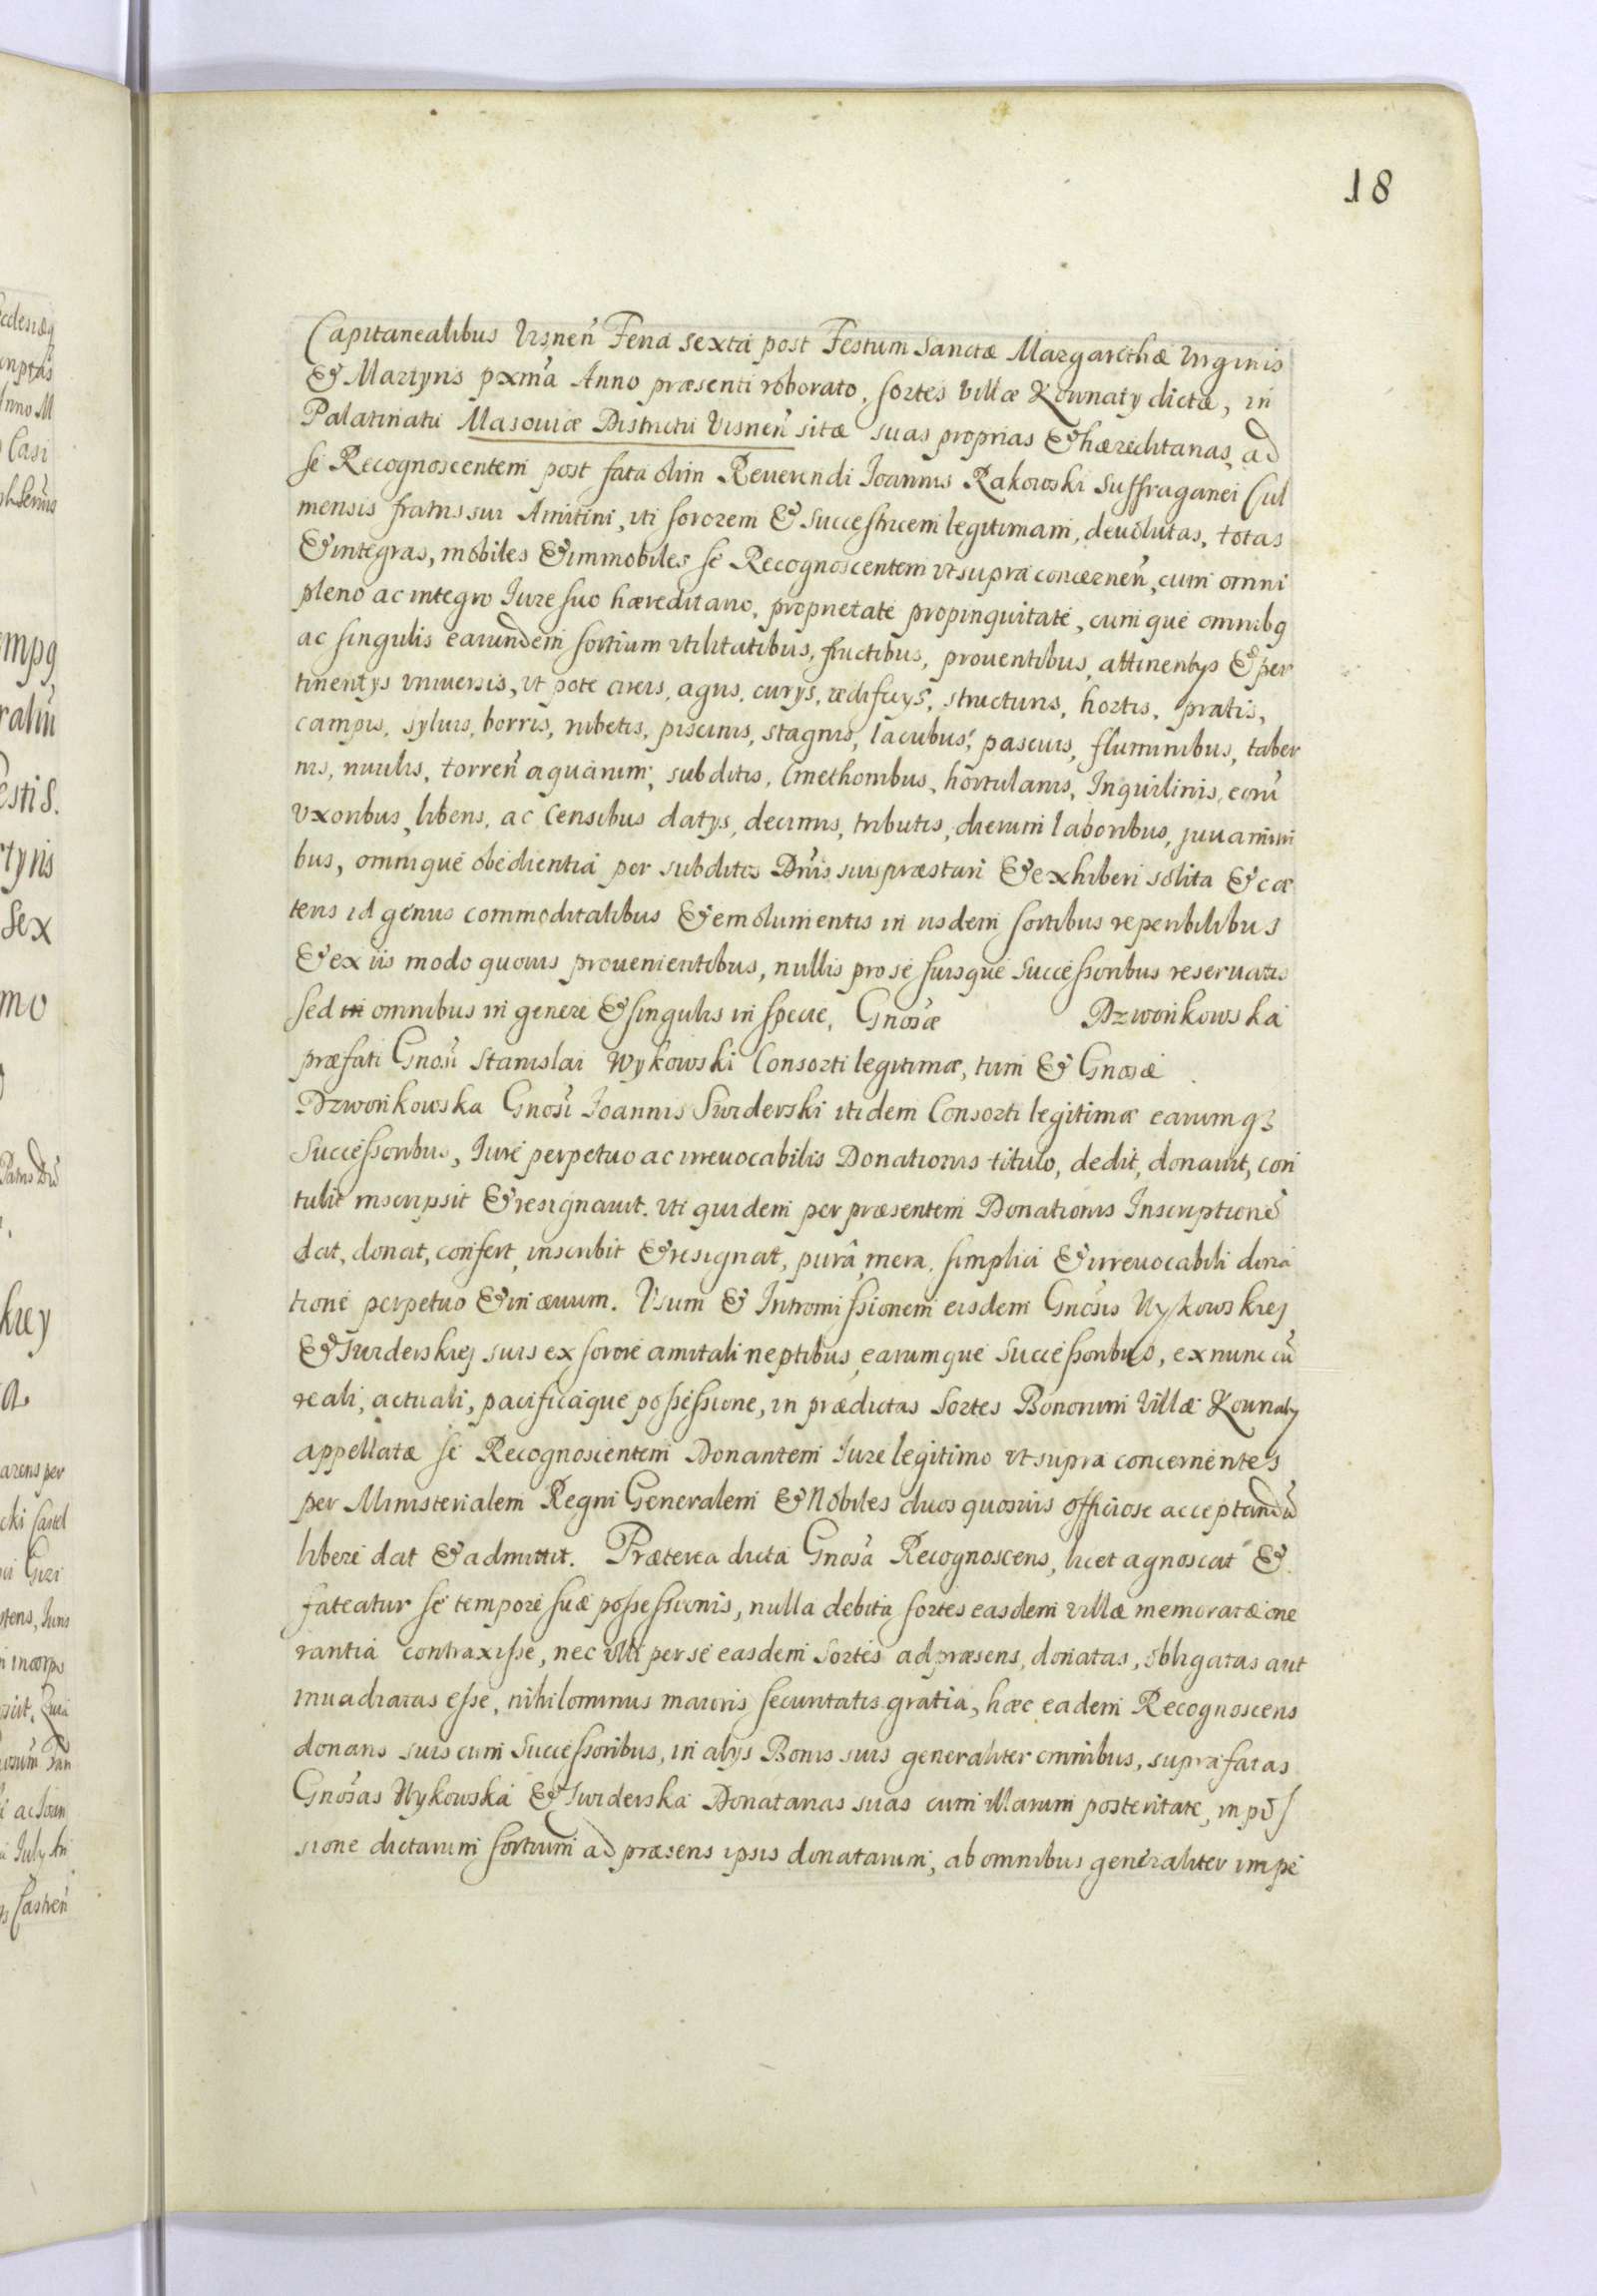 18
Capitanealibus Visnen̄ Feria sexta post Festum Sanctæ Margarethæ Virginis
& Martyris pxm̄a Anno præsenti roborato, sortes villæ Kownaty dictæ, in
Palatinatu Masoviæ Districtu Visnen̄ sitæ suas proprias & hæreditarias, ad
se Recognoscentem post fata olim Reverendi Joannis Rakowski Suffraganei Cul
mensis fratris sui Amitini, uti sororem & Successricem legitimam, devolutas, totas
& integras, mobiles & immobiles se Recognoscentem ut supra concernen̄, cum omni
pleno ac integro Jure suo hæreditario, proprietate propinquitate, cum que omnibq
ac singulis earundem sortium utilitatibus, fructibus, proventibus, attinentÿs & per
tinentÿs universis, ut pote areis, agris, curÿs, ædificÿs, structuris, hortis, pratis,
campis, sylvis, borris, rubetis, piscinis, stagnis, lacubus, pascuis, fluminibus, taber
nis, rivulis, torren̄ aquarum, subditis, Cmethonibus, hortulanis, Inquilinis, eorū
Uxoribus, liberis, ac Censibus datÿs, decimis, tributis, dierum laboribus, juvamini
bus, omnique obedientia per subditos Dn̄is suis præstari & exhiberi solita & cæ
teris id genus commoditatibus & emolumentis in iisdem sortibus reperibilibus
& ex iis modo quovis provenientibus, nullis pro se suisque Successoribus reservatis
sed in omnibus in genere & singulis in specie, Gnosæ Dzwonkowska
præfati Gnosi Stanislai Wykowski Consorti legitimæ, tum & Gnosæ
Dzwonkowska Gnosi Joannis Swiderski itidem Consorti legitimæ earumqꝫ
Successoribus, Jure perpetuo ac irrevocabilis Donationis titulo, dedit, donavit, con
tulit inscripsit & resignavit. uti quidem per præsentem Donationis Inscriptionē
dat, donat, confert, inscribit & resignat, purâ, mera, simplici & irrevocabili dona
tione perpetuo & in ævum. Usum & Intromissionem eisdem Gnosis Wykowskiej
& Swiderskiej suis ex sorore amitali neptibus, earumque Successoribus, ex nunc cū
reali, actuali, pacificaque possessione, in prædictas Sortes Bonorum Villæ Kownaty
appellatæ se Recognoscentem Donantem Jure legitimo ut supra concernentes
per Ministerialem Regni Generalem & Nobiles duos quosvis officiose acceptandū
libere dat & admittit. Præterea dicta Gnosa Recognoscens, licet agnoscat &
fateatur se tempore suæ possessionis, nulla debita sortes easdem villæ memoratæ one
rantia contraxisse, nec ulli per se easdem Sortes ad præsens, donatas, obligatas aut
invadiatas esse, nihilominus maioris securitatis gratia, hæc eadem Recognoscens
donans suis cum Successoribus, in alÿs Bonis suis generaliter omnibus, suprafatas
Gnosas Wykowska & Swiderska Donatarias suas cum illarum posteritate, in pos
sione dictarum sortium ad præsens ipsis donatarum, ab omnibus generaliter impe